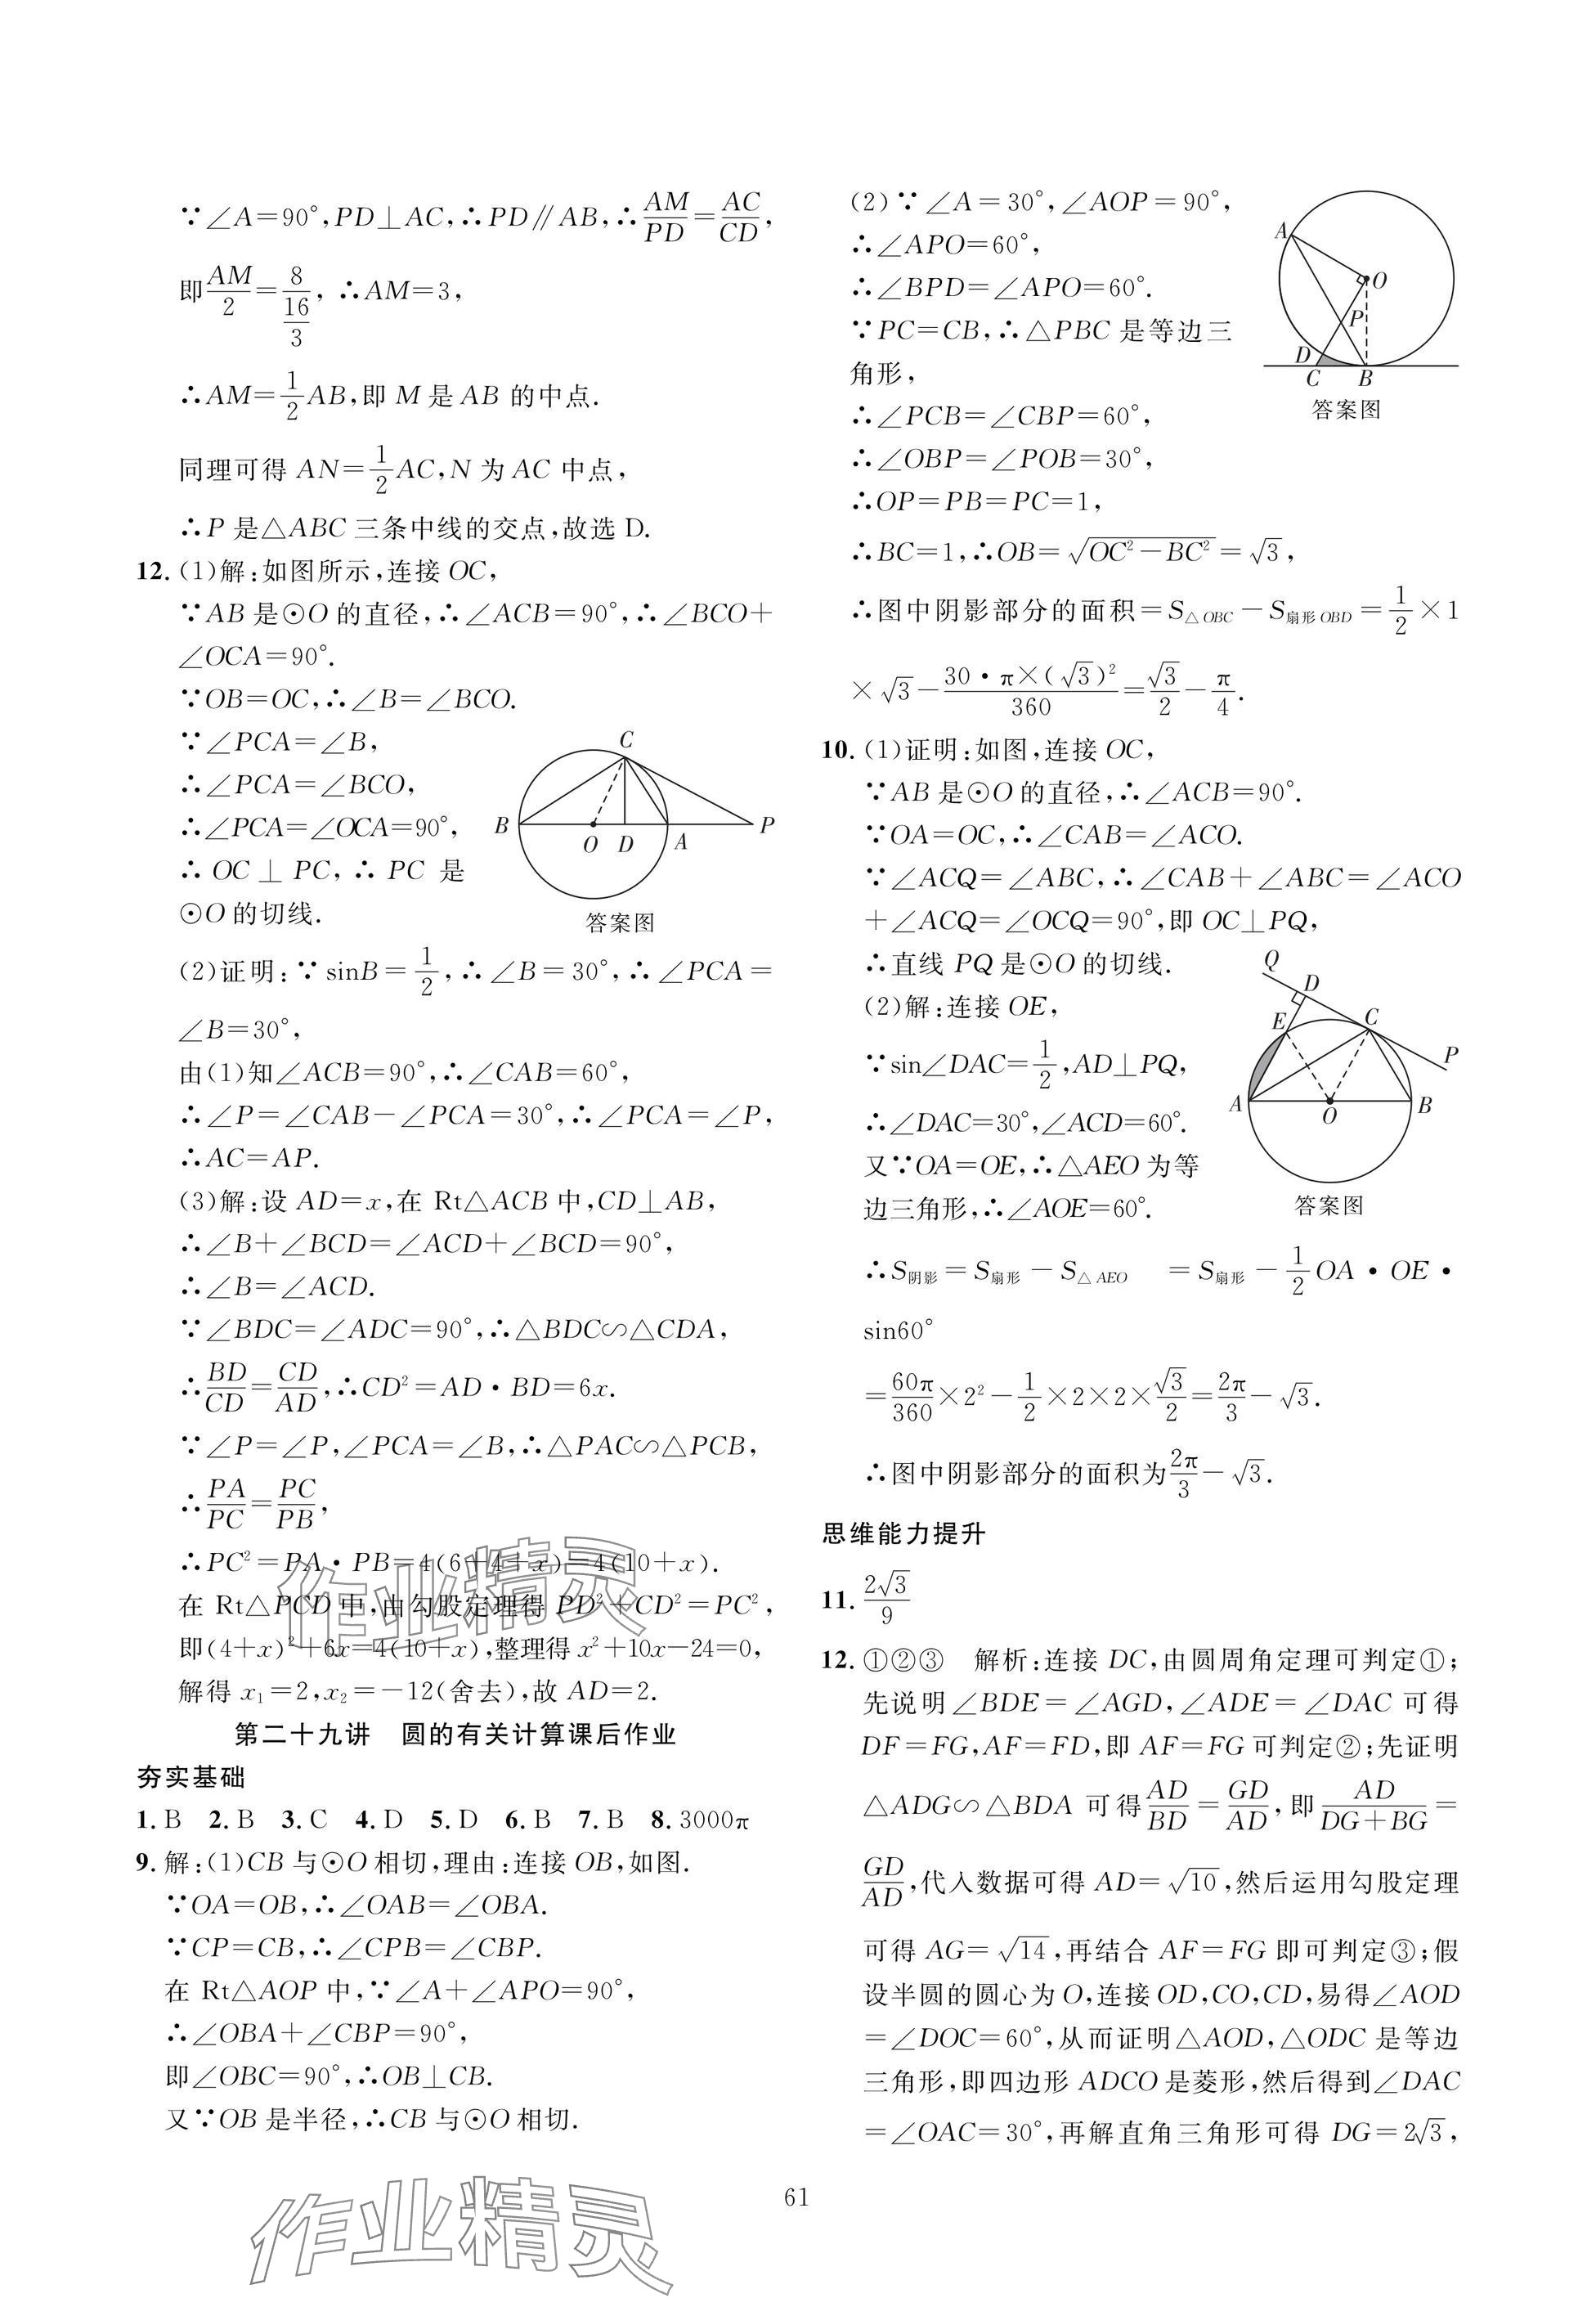 ∵∠A=90°,PD⊥AC,∴PD∥AB,∴AM/PD=AC/CD,
即AM/2=8/(16/3),∴AM=3,
∴AM=1/2AB,即M是AB的中点.
同理可得AN=1/2AC,N为AC中点,
∴P是△ABC三条中线的交点,故选D.
12.(1)解:如图所示,连接OC,
∵AB是⊙O的直径,∴∠ACB=90°,∴∠BCO+
∠OCA=90°.
∵OB=OC,∴∠B=∠BCO.
∵∠PCA=∠B,
∴∠PCA=∠BCO,
∴∠PCA=∠OCA=90°,
∴OC⊥PC,∴PC是
⊙O的切线.
C
B
O
D
A
P
答案图
(2)证明:∵sinB=1/2,∴∠B=30°,∴∠PCA=
∠B=30°,
由(1)知∠ACB=90°,∴∠CAB=60°,
∴∠P=∠CAB-∠PCA=30°,∴∠PCA=∠P,
∴AC=AP.
(3)解:设AD=x,在Rt△ACB中,CD⊥AB,
∴∠B+∠BCD=∠ACD+∠BCD=90°,
∴∠B=∠ACD.
∵∠BDC=∠ADC=90°,∴△BDC∽△CDA,
∴BD/CD=CD/AD,∴CD²=AD·BD=6x.
∵∠P=∠P,∠PCA=∠B,∴△PAC∽△PCB,
∴PA/PC=PC/PB,
∴PC²=PA·PB=4(6+4+x)=4(10+x).
在Rt△PCD中,由勾股定理得PD²+CD²=PC²,
即(4+x)²+6x=4(10+x),整理得x²+10x-24=0,
解得x₁=2,x₂=-12(舍去),故AD=2.
第二十九讲 圆的有关计算课后作业
夯实基础
1.B 2.B 3.C 4.D 5.D 6.B 7.B 8.3000π
9.解:(1)CB与⊙O相切,理由:连接OB,如图.
∵OA=OB,∴∠OAB=∠OBA.
∵CP=CB,∴∠CPB=∠CBP.
在Rt△AOP中,∵∠A+∠APO=90°,
∴∠OBA+∠CBP=90°,
即∠OBC=90°,∴OB⊥CB.
又∵OB是半径,∴CB与⊙O相切.
(2)∵∠A=30°,∠AOP=90°,
∴∠APO=60°,
∴∠BPD=∠APO=60°.
∵PC=CB,∴△PBC是等边三
角形,
∴∠PCB=∠CBP=60°,
∴∠OBP=∠POB=30°,
∴OP=PB=PC=1,
A
O
P
D
C
B
答案图
∴BC=1,∴OB=√(OC²-BC²)=√3,
∴图中阴影部分的面积=S△OBC-S扇形OBD=1/2×1
×√3-30·π×(√3)²/360=√3/2-π/4.
10.(1)证明:如图,连接OC,
∵AB是⊙O的直径,∴∠ACB=90°.
∵OA=OC,∴∠CAB=∠ACO.
∵∠ACQ=∠ABC,∴∠CAB+∠ABC=∠ACO
+∠ACQ=∠OCQ=90°,即OC⊥PQ,
∴直线PQ是⊙O的切线.
(2)解:连接OE,
∵sin∠DAC=1/2,AD⊥PQ,
∴∠DAC=30°,∠ACD=60°.
又∵OA=OE,∴△AEO为等
边三角形,∴∠AOE=60°.
Q
D
E
C
P
A
O
B
答案图
∴S阴影=S扇形-S△AEO =S扇形-1/2OA·OE·
sin60°
=60π/360×2²-1/2×2×2×√3/2=2π/3-√3.
∴图中阴影部分的面积为2π/3-√3.
思维能力提升
11.2√3/9
12.①②③ 解析:连接DC,由圆周角定理可判定①;
先说明∠BDE=∠AGD,∠ADE=∠DAC可得
DF=FG,AF=FD,即AF=FG可判定②;先证明
△ADG∽△BDA可得AD/BD=GD/AD,即AD/(DG+BG)=
GD/AD,代入数据可得AD=√10,然后运用勾股定理
可得AG=√14,再结合AF=FG即可判定③;假
设半圆的圆心为O,连接OD,CO,CD,易得∠AOD
=∠DOC=60°,从而证明△AOD,△ODC是等边
三角形,即四边形ADCO是菱形,然后得到∠DAC
=∠OAC=30°,再解直角三角形可得DG=2√3,
61
作业精灵
作业精灵